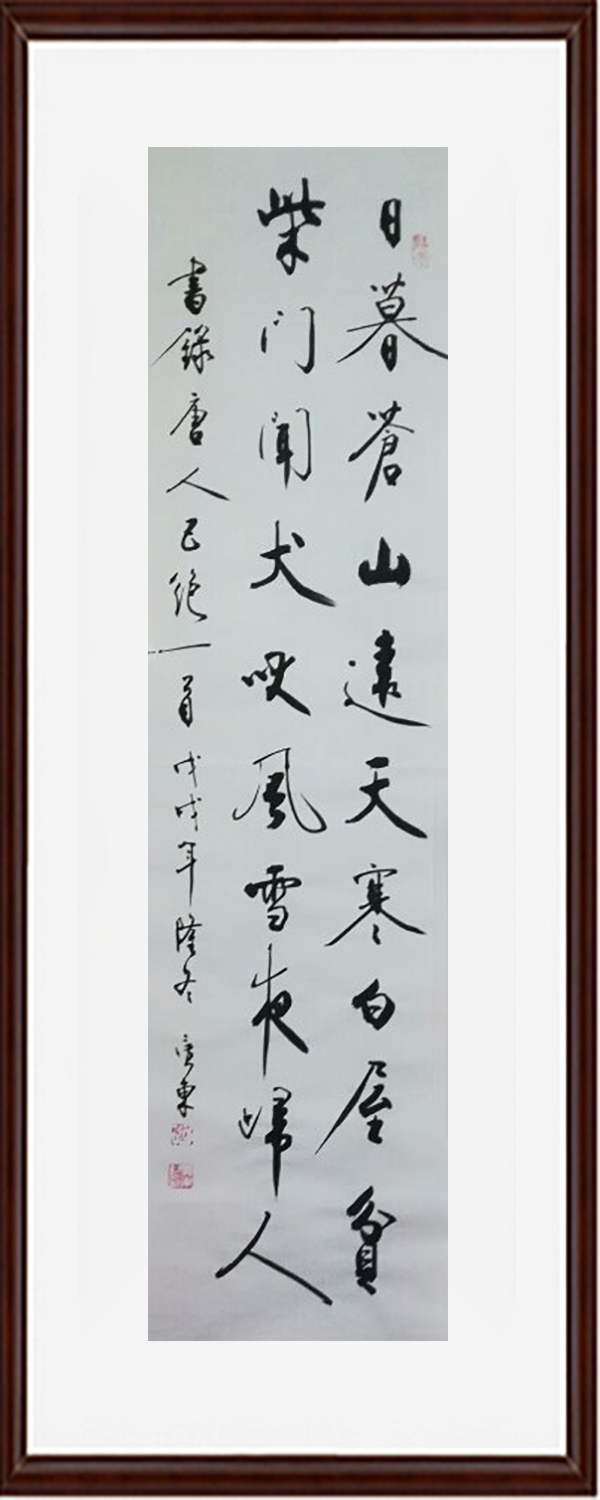 日暮蒼山遠天寒白屋貧
柴门闻犬吠風雪夜歸人
書録唐人五绝一首 戊戌年隆冬 東